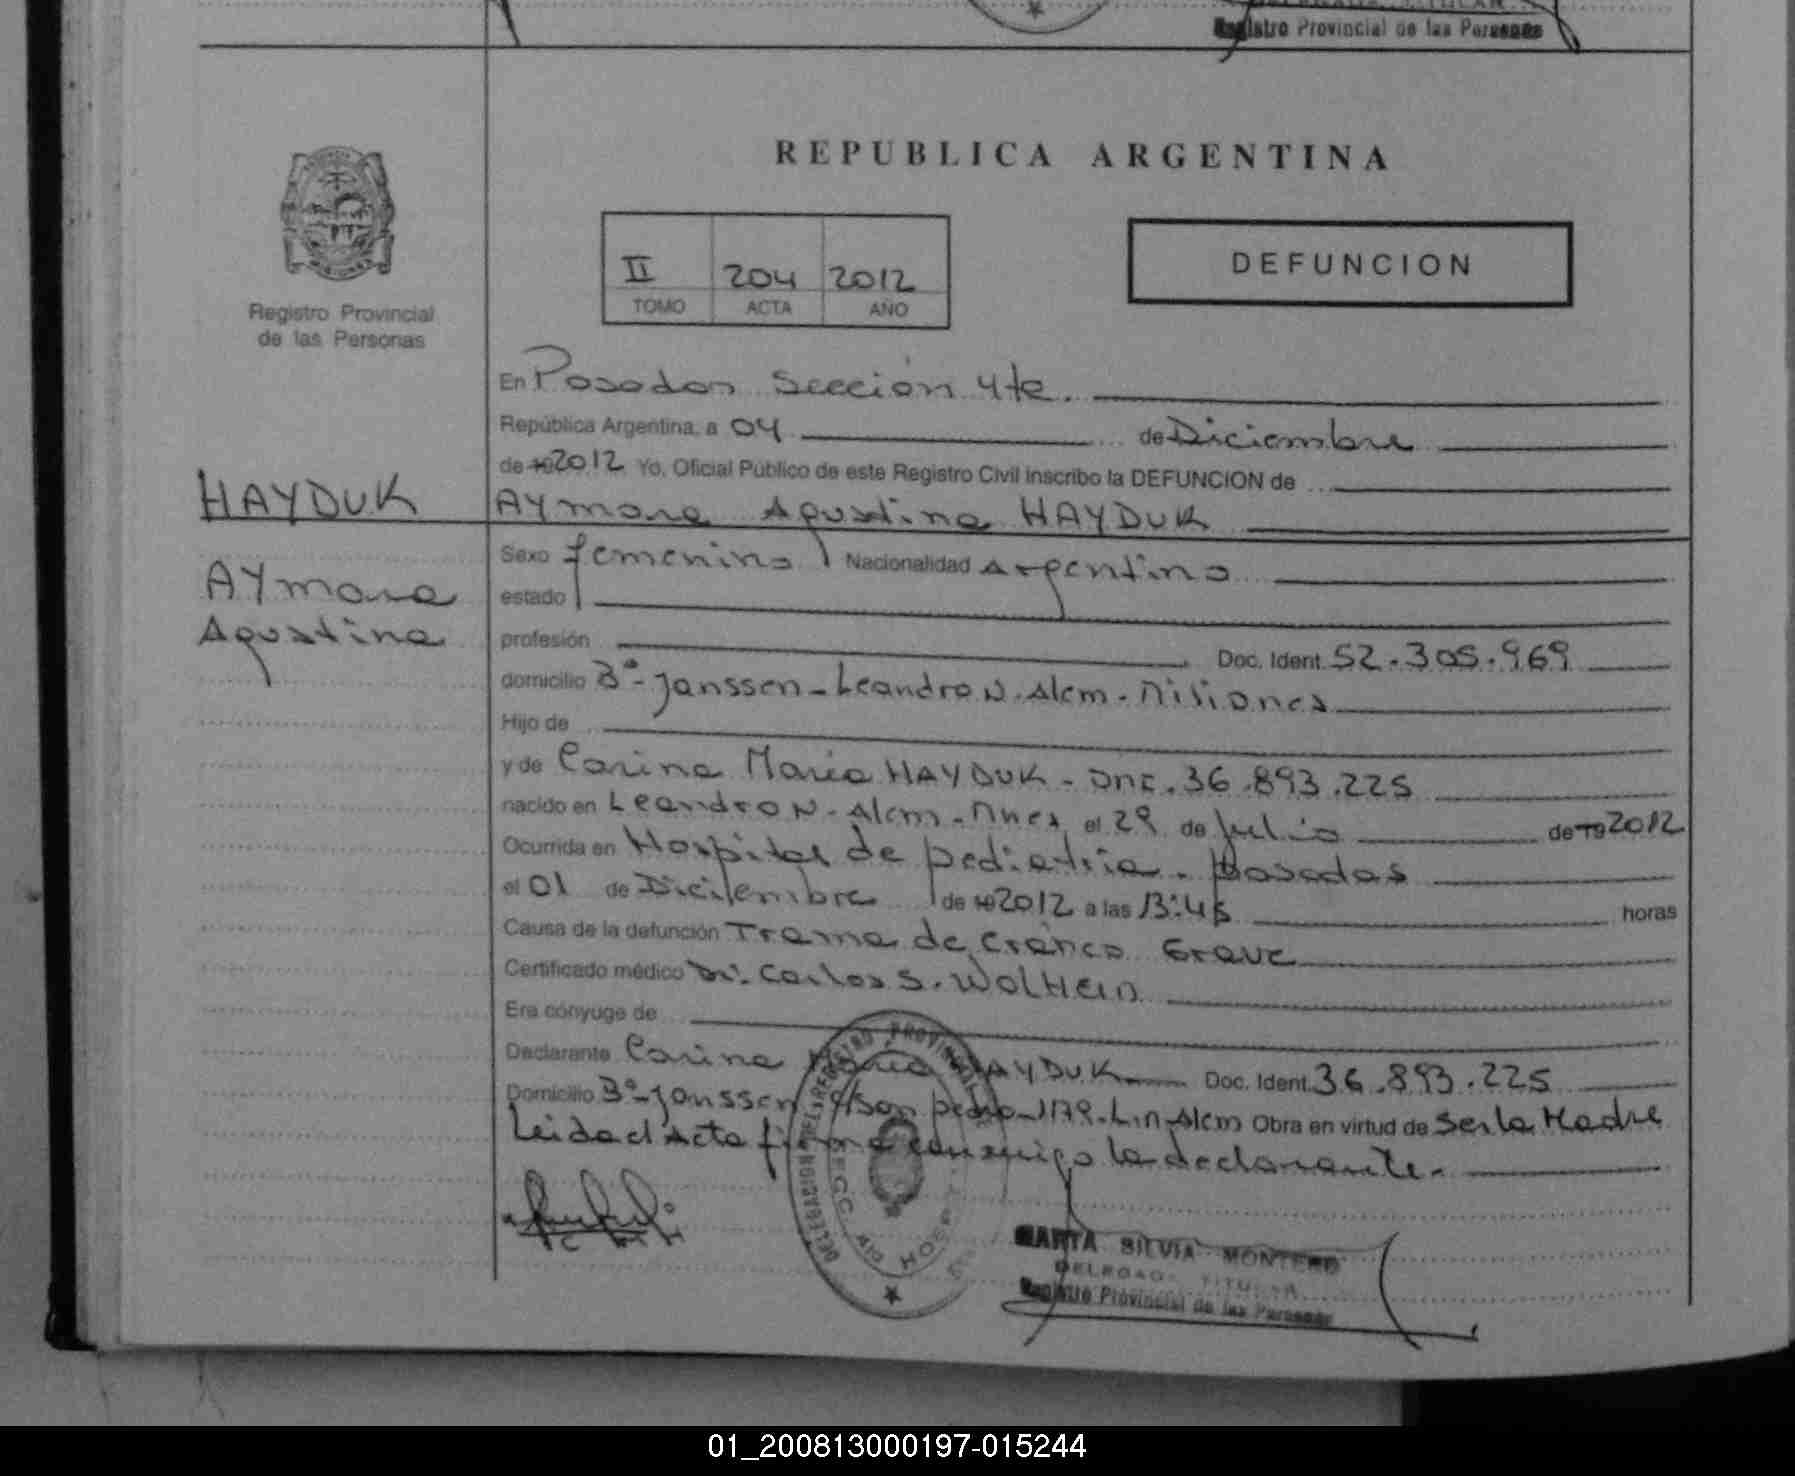 Registro Provincial de las Personas
REPUBLICA ARGENTINA
II 204 2012
TOMO ACTA AÑO
DEFUNCION
Registro Provincial
de las Personas
En Posadas Sección 4ta.
República Argentina, a 04 de Diciembre
de 19 2012 Yo, Oficial Público de este Registro Civil inscribo la DEFUNCION de
HAYDUK
Aymara Agustina HAYDUK
Sexo femenino Nacionalidad Argentina
Aymara
Agustina
estado
profesión Doc. Ident. 52.305.969
domicilio Bº-Janssen-Leandro N. Alem-Misiones
Hijo de
y de Carina María HAYDUK - DNI. 36.893.225
nacido en Leandro N. Alem-Mnes el 29 de Julio de 19 2012
Ocurrida en Hospital de pediatria. Posadas
el 01 de Diciembre de 19 2012 a las 13:45 horas
Causa de la defunción Trama de cráneo Grave
Certificado médico Dr. Carlos S. Wolhein
Era cónyuge de
Declarante Carina María HAYDUK Doc. Ident. 36.893.225
Domicilio Bº-Janssen c/San pedro-1179-L.N-Alem Obra en virtud de Ser la Madre
Leida el Acta firma conmigo la declarante.
DELEGACION DEL REGISTRO PROVINCIAL
SECC. 4ta HOSP.
MARTA SILVIA MONTERO
DELEGADA TITULAR
Registro Provincial de las Personas
01_200813000197-015244